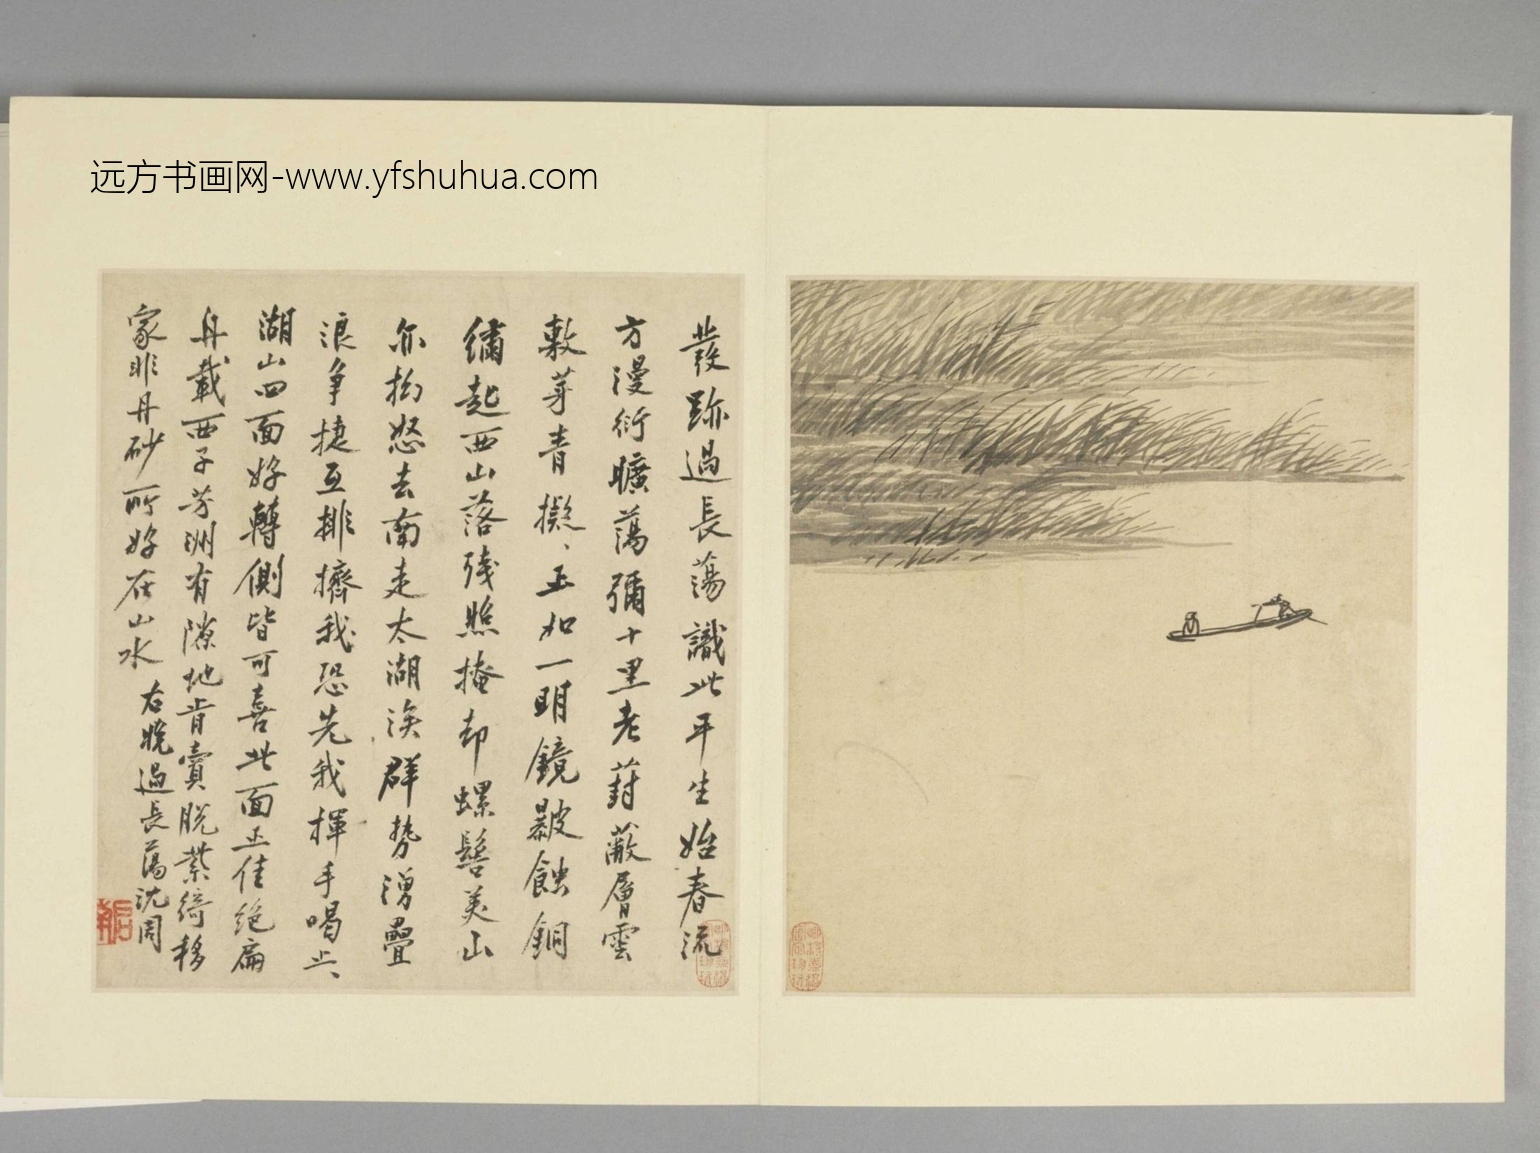 远方书画网-www.yfshuhua.com
發跡過長蕩識此平生始春流
方漫衍曠蕩彌十里老葑蔽層雲
敷芽青擬、正如一明鏡皺蝕銅
繡起西山落殘照掩却螺髻美山
亦拗怒去南走太湖涘群勢湧疊
浪爭捷互排擠我恐先我揮手喝止、
湖山四面好轉側皆可喜此面正佳絶扁
舟載西子芳洲有隙地肯賣脫紫綺移
家非丹砂所好在山水
右晚過長蕩沈周
啟南